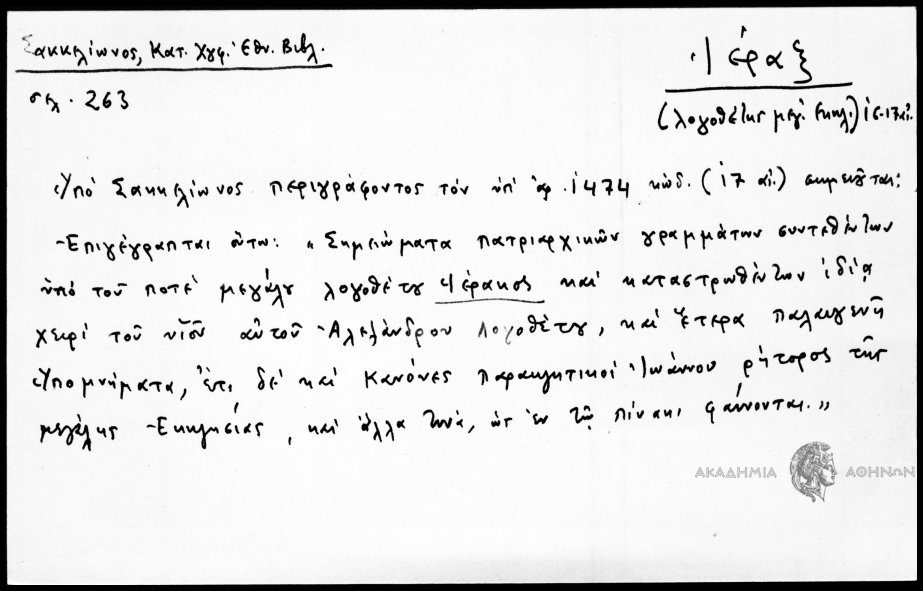 Σακκελίωνος, Κατ. Χγφ. Ἐθν. Βιβλ.
σελ. 263
Ἱέραξ
(λογοθέτης μεγ. Ἐκκλ.) 16-17 αἰ.
Ὑπὸ Σακκελίωνος περιγράφοντος τὸν ὑπ' ἀρ. 1474 κώδ. (17 αἰ.) σημειοῦται:
Ἐπιγέγραπται οὕτω: "Σημειώματα πατριαρχικῶν γραμμάτων συντεθέντων
ὑπὸ τοῦ ποτὲ μεγάλου λογοθέτου Ἱέρακος καὶ καταστρωθέντων ἰδίᾳ
χειρὶ τοῦ υἱοῦ αὐτοῦ Ἀλεξάνδρου Λογοθέτου, καὶ ἕτερα παλαιγενῆ
Ὑπομνήματα, ἔτι δὲ καὶ Κανόνες παρακλητικοὶ Ἰωάννου ῥήτορος τῆς
μεγάλης Ἐκκλησίας, καὶ ἄλλα τινά, ὡς ἐν τῷ πίνακι φαίνονται."
ΑΚΑΔΗΜΙΑ ΑΘΗΝΩΝ